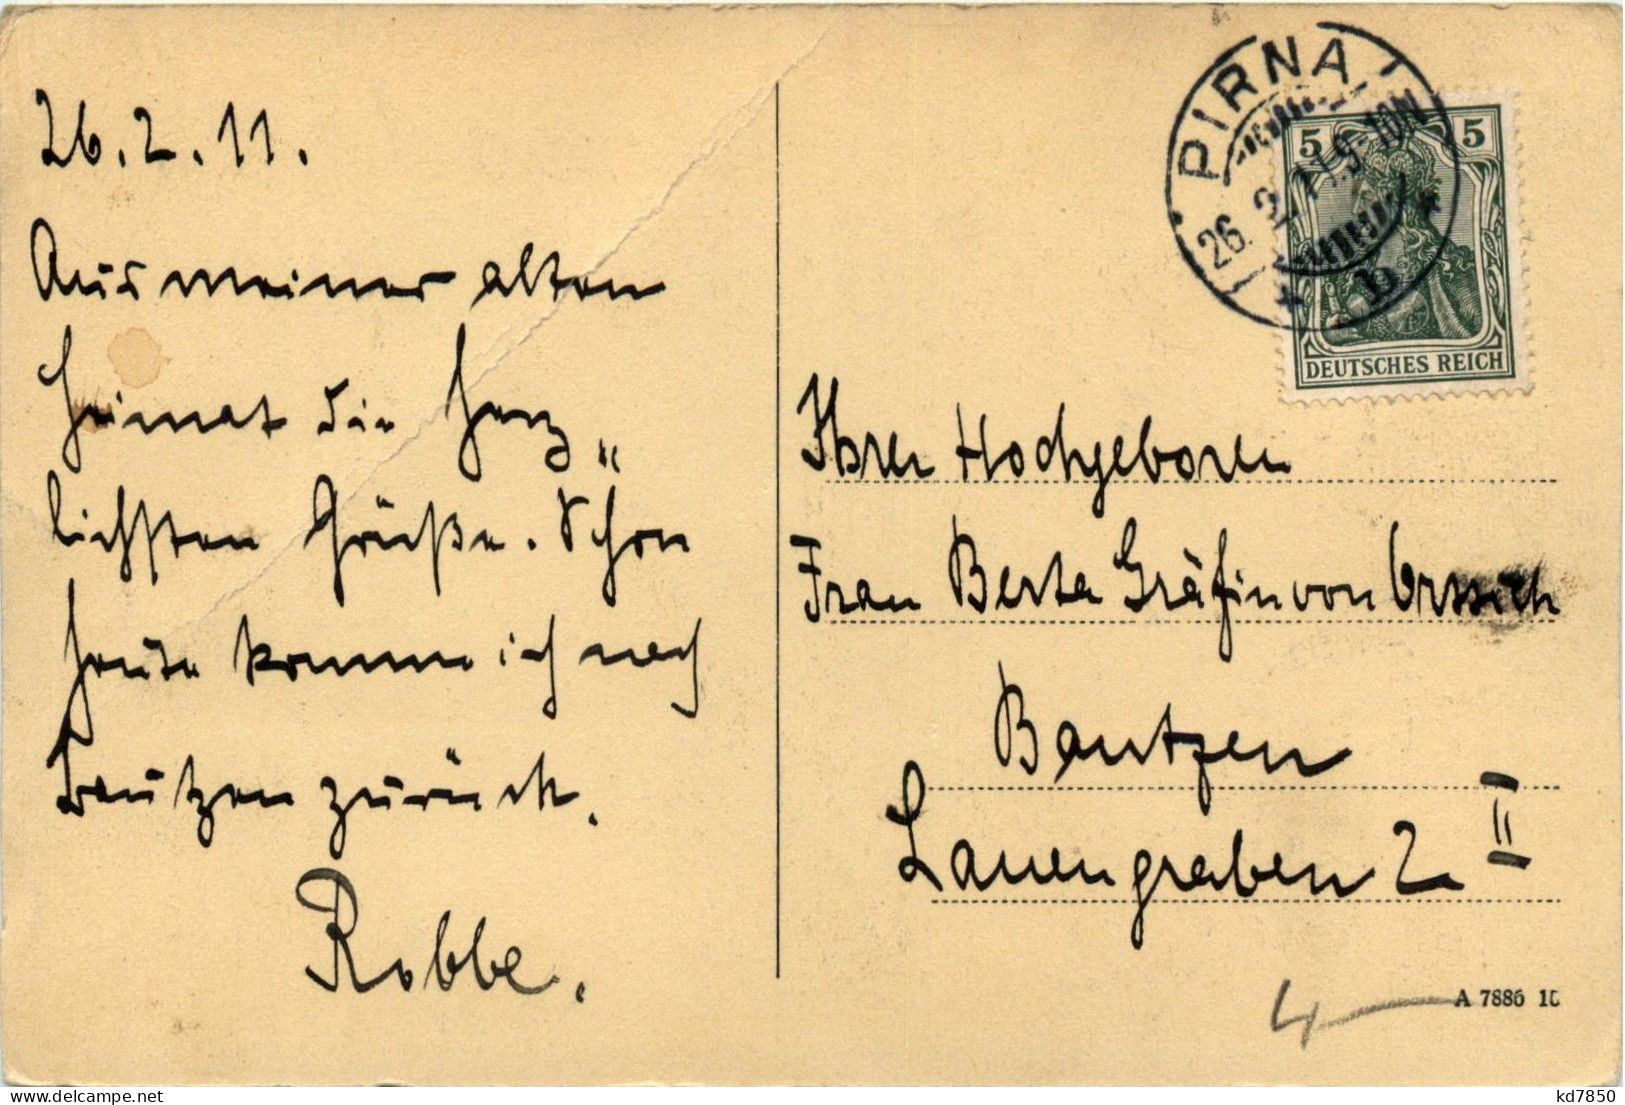 26.2.11.
Aus meiner alten
Heimat die herz„
lichsten Grüße. Schon
heute komme ich nach
Bautzen zurück.
Robbe.
PIRNA
26. 2. 11. 9-10N
* b *
5 5
DEUTSCHES REICH
Ihrer Hochgeboren
Frau Berta Gräfin von
Bautzen
Lauengraben 2 II
4
A 7886 10
kd7850